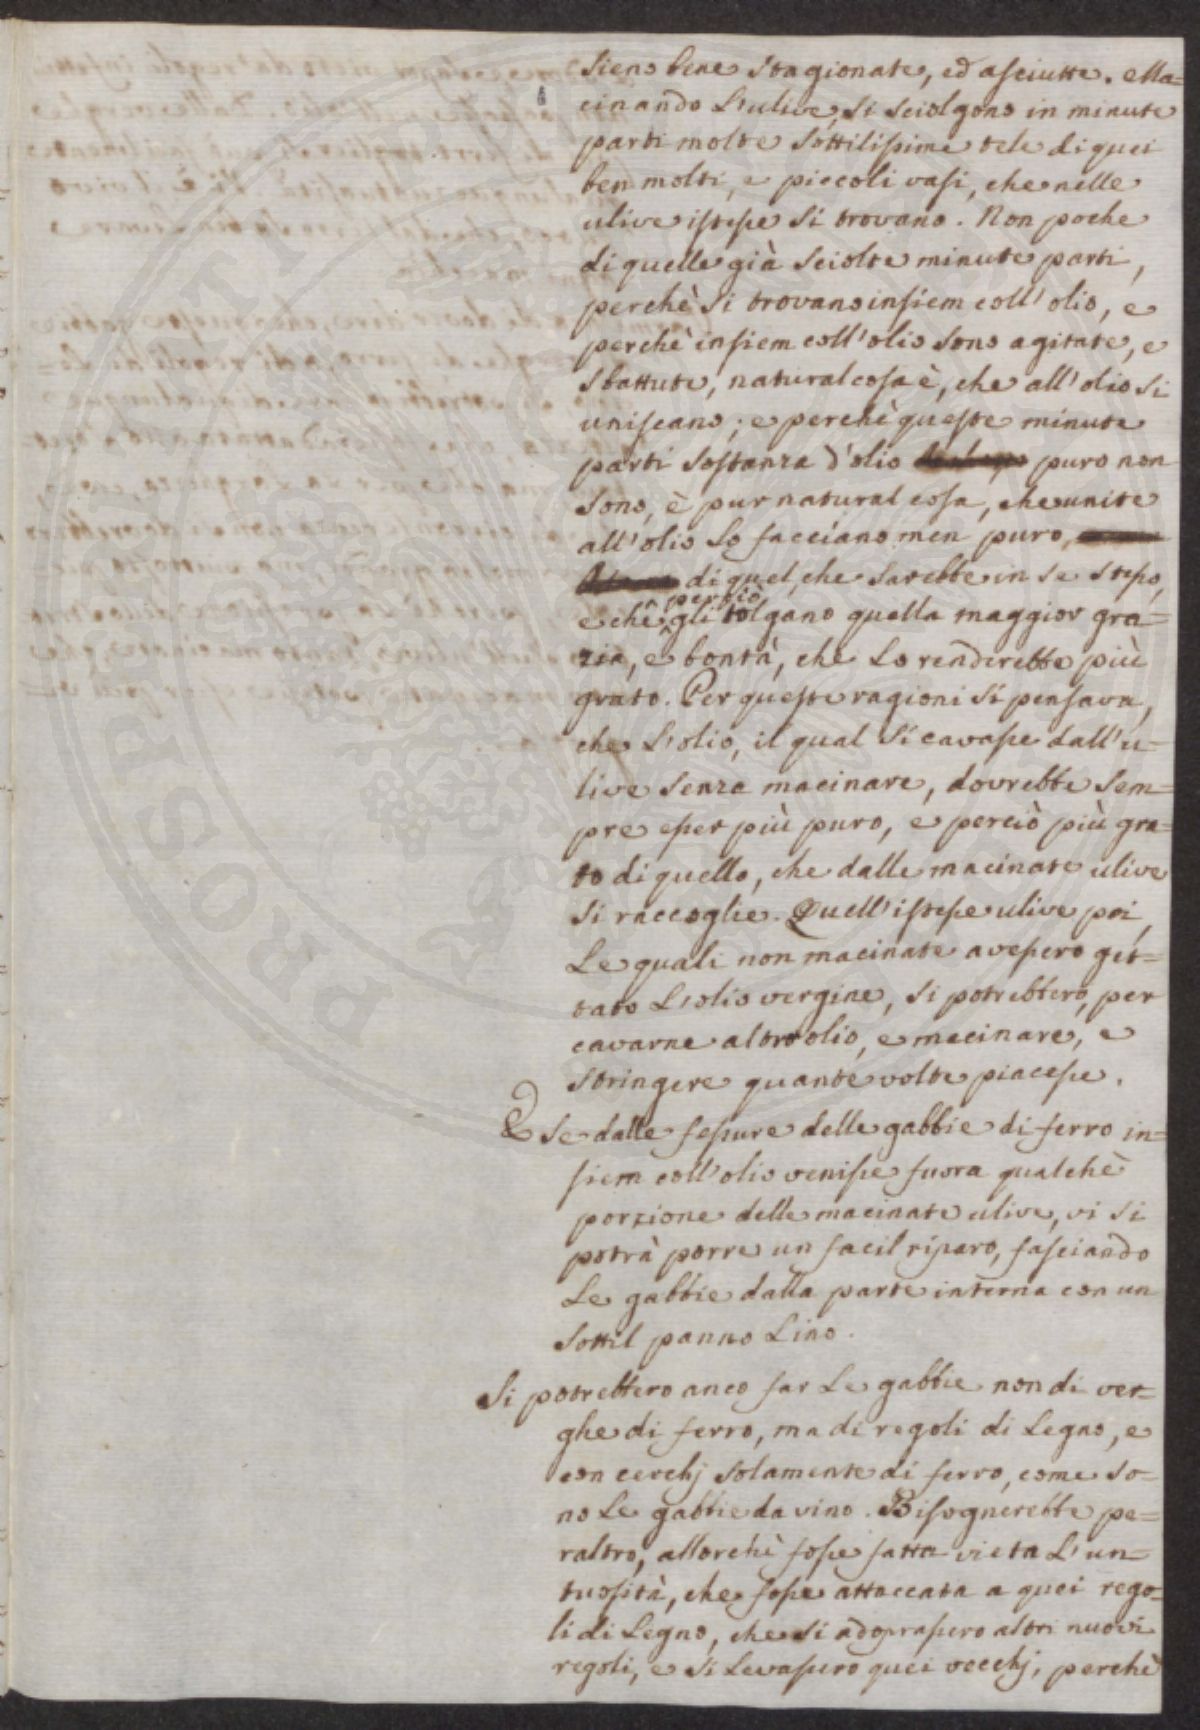 sieno bene stagionate, ed asciutte. Ma=
cinando l'ulive, si sciolgono in minute
parti molte sottilissime tele di quei
ben molti, e piccoli vasi, che nelle
ulive istesse si trovano. Non poche
di quelle già sciolte minute parti,
perchè si trovano insiem coll' olio, e
perchè insiem coll'olio sono agitate, e
sbattute, natural cosa è, che all' olio si
uniscano; e perchè queste minute
parti sostanza d'olio puro non
sono, è pur natural cosa, che unite
all'olio lo facciano men puro,
di quel, che sarebbe in se stesso,
e che perciò gli tolgano quella maggior gra=
zia, e bontà, che lo renderebbe più
grato. Per queste ragioni si pensava,
che l'olio, il qual si cavasse dall'u=
live senza macinare, dovrebbe sem=
pre esser più puro, e perciò più gra=
to di quello, che dalle macinate ulive
si raccoglie. Quell'istesse ulive poi,
le quali non macinate avessero get=
tato l'olio vergine, si potrebbero, per
cavarne altro olio, e macinare, e
stringere quante volte piacesse.
E se dalle fessure delle gabbie di ferro in=
siem coll'olio venisse fuora qualchè
porzione delle macinate ulive, vi si
potrà porre un facil riparo, fasciando
le gabbie dalla parte interna con un
sottil panno lino.
Si potrebbero anco far le gabbie non di ver=
ghe di ferro, ma di regoli di legno, e
con cerchj solamente di ferro, come so=
no le gabbie da vino. Bisognerebbe pe=
raltro, allorchè fosse fatta vieta l'un=
tuosità, che fosse attaccata a quei rego=
li di legno, che si adoprassero altri nuovi
regoli, e si levassero quei vecchj, perchè